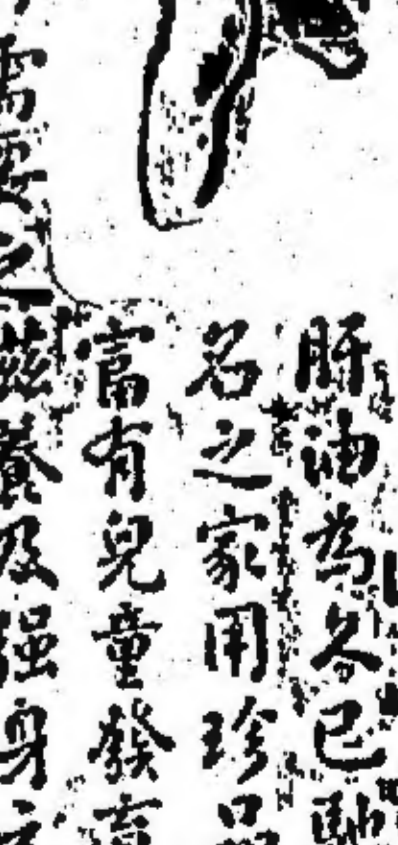 肝油為久已馳
名之家用珍品
富有兒童發育
需要之滋養及强身